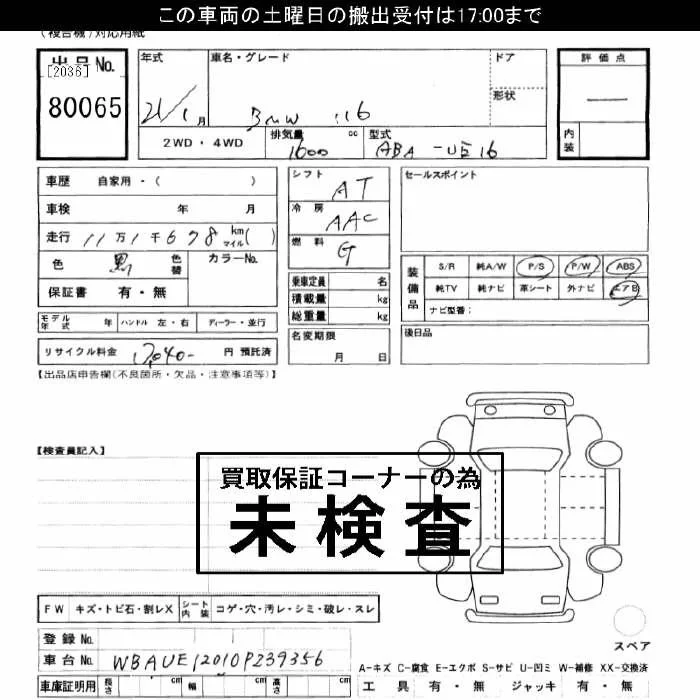 この車両の土曜日の搬出受付は17:00まで
(複合機)対応用紙
出品No.
[2036]
80065
年式
21/1月
車名・グレード
BMW 116
ドア
形状
評価点
—
内装
2WD・4WD
排気量 1600 cc
型式 ABA-UE16
車歴 自家用・( )
車検 年 月
走行 11万1千678 km マイル( )
色 黒 色替 カラーNo.
保証書 有・無
シフト AT
冷房 AAC
燃料 G
乗車定員 名
積載量 kg
総重量 kg
セールスポイント
装備品
S/R 純A/W P/S P/W ABS
純TV 純ナビ 革シート 外ナビ エアB
ナビ型番:
モデル年式 年 ハンドル 左・右 ディーラー・並行
リサイクル料金 12,040- 円 預託済
名変期限
月 日
後日品
【出品店申告欄(不良箇所・欠品・注意事項等)】
【検査員記入】
買取保証コーナーの為
未検査
FW キズ・トビ石・割レX シート内装 コゲ・穴・汚レ・シミ・破レ・スレ
登録No.
車台No. WBAUE12010PZ39356
スペア
A-キズ C-腐食 E-エクボ S-サビ U-凹ミ W-補修 XX-交換済
車庫証明用 長さ cm 幅 cm 高さ cm
工具 有・無 ジャッキ 有・無